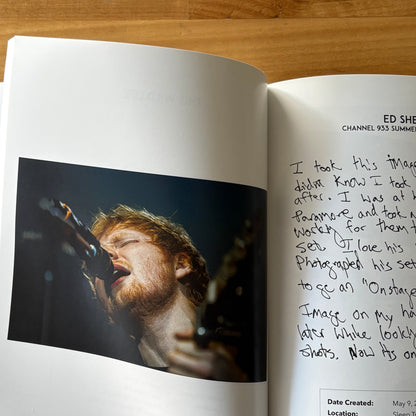 ED SHE
CHANNEL 933 SUMME
I took this image
didn't know I took
after. I was at h
Paramore and took
working for them t
set. I love his
Photographed his set
to go an "Onstag
Image on my ha
later while look
shots. Now its on
Date Created: May 9, 2
Location: Sleep T